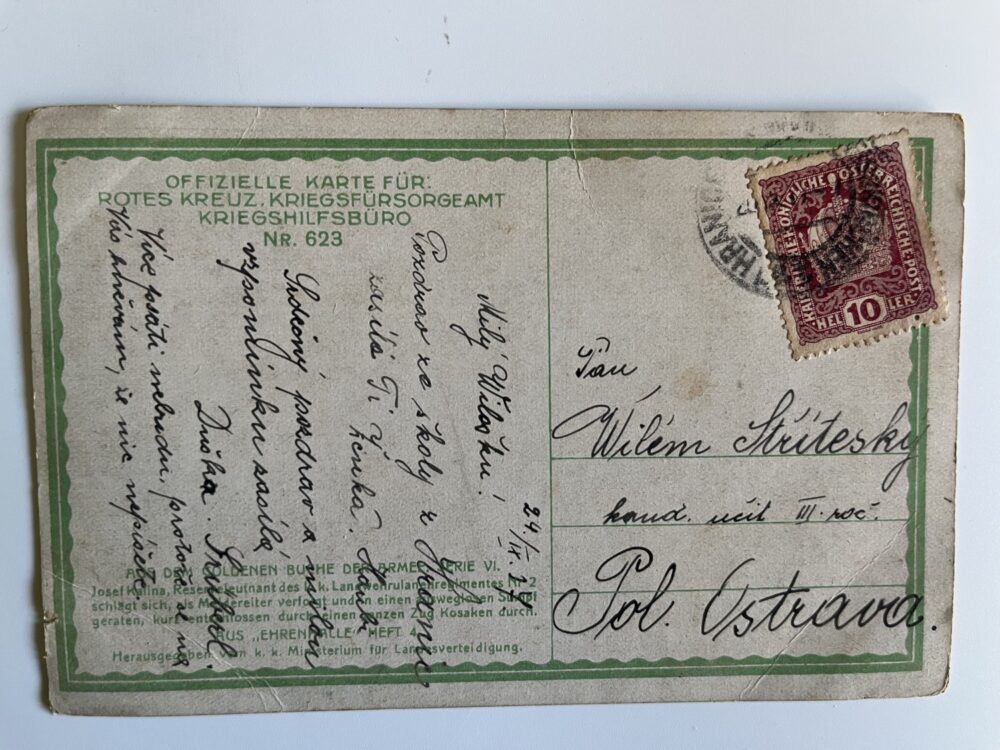 OFFIZIELLE KARTE FÜR:
ROTES KREUZ, KRIEGSFÜRSORGEAMT
KRIEGSHILFSBÜRO
NR. 623
24./IX.
Milý
Pozdrav ze školy z Hranic
zasílá Ti Ženka.
Srdečný pozdrav a milou
vzpomínku zasílá
Duška.
Více psáti nebudu, protože se na
Vás hněvám, že nic nepíšete.
AUS DEM GOLDENEN BUCHE DER ARMEE, SERIE VI.
Josef Kalina, Reserveleutnant des k. k. Landwehrulanenregimentes Nr. 2
schlägt sich, als Meldereiter verfolgt und in einen ausweglosen Sumpf
geraten, kurz entschlossen durch einen ganzen Zug Kosaken durch.
AUS „EHRENHALLE" HEFT 4
Herausgegeben vom k. k. Ministerium für Landesverteidigung.
KAISERLICHE KÖNIGLICHE ÖSTERREICHISCHE POST
HELLER 10
Pan
Wilém Střítesky
kand. učit III. roč.
Pol. Ostrava.